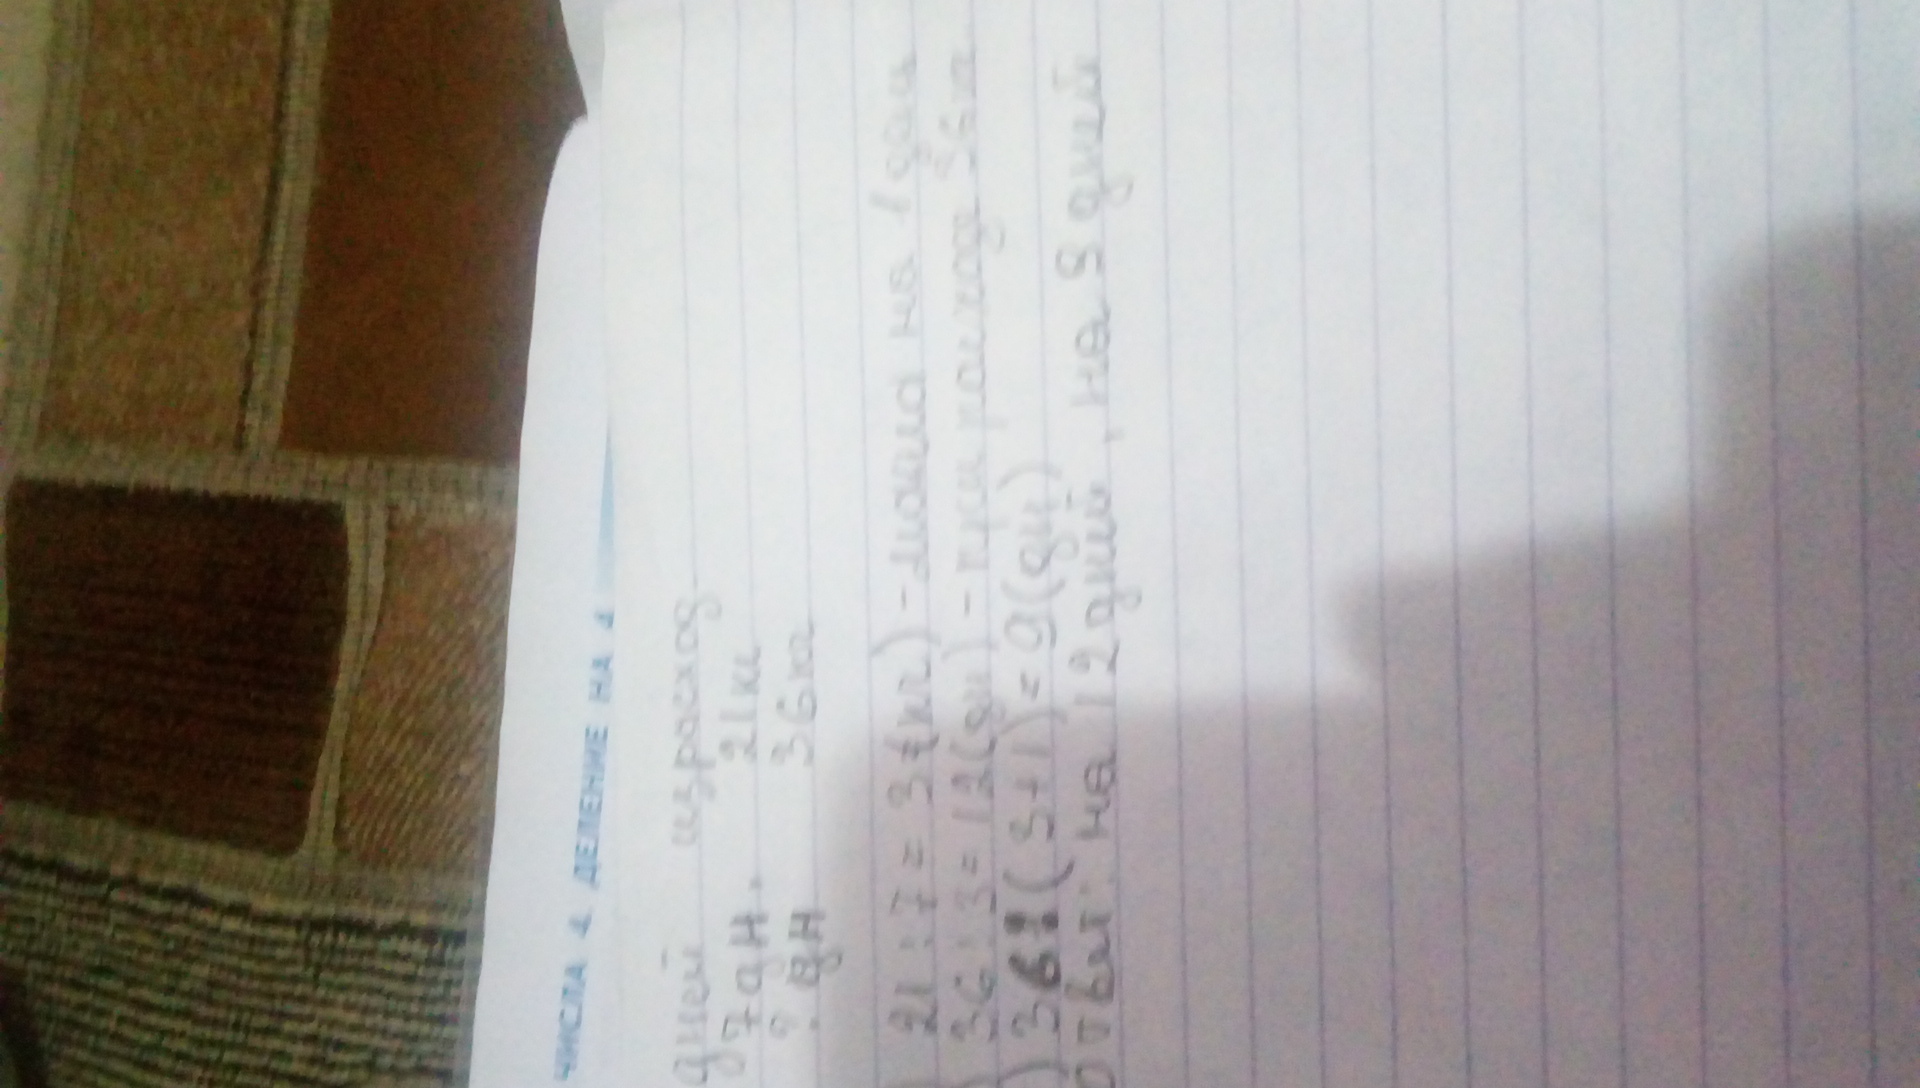 ЧИСЛА 4. ДЕЛЕНИЕ НА 4
дней израсход.
7 дн. 21 кг
? дн 36 кг
21 : 7 = 3 (кг) - на 1 день
36 : 3 = 12 (дн) - при расход 36 кг
) 36 : (3+1) = 9 (дн)
Ответ: на 12 дней, на 9 дней